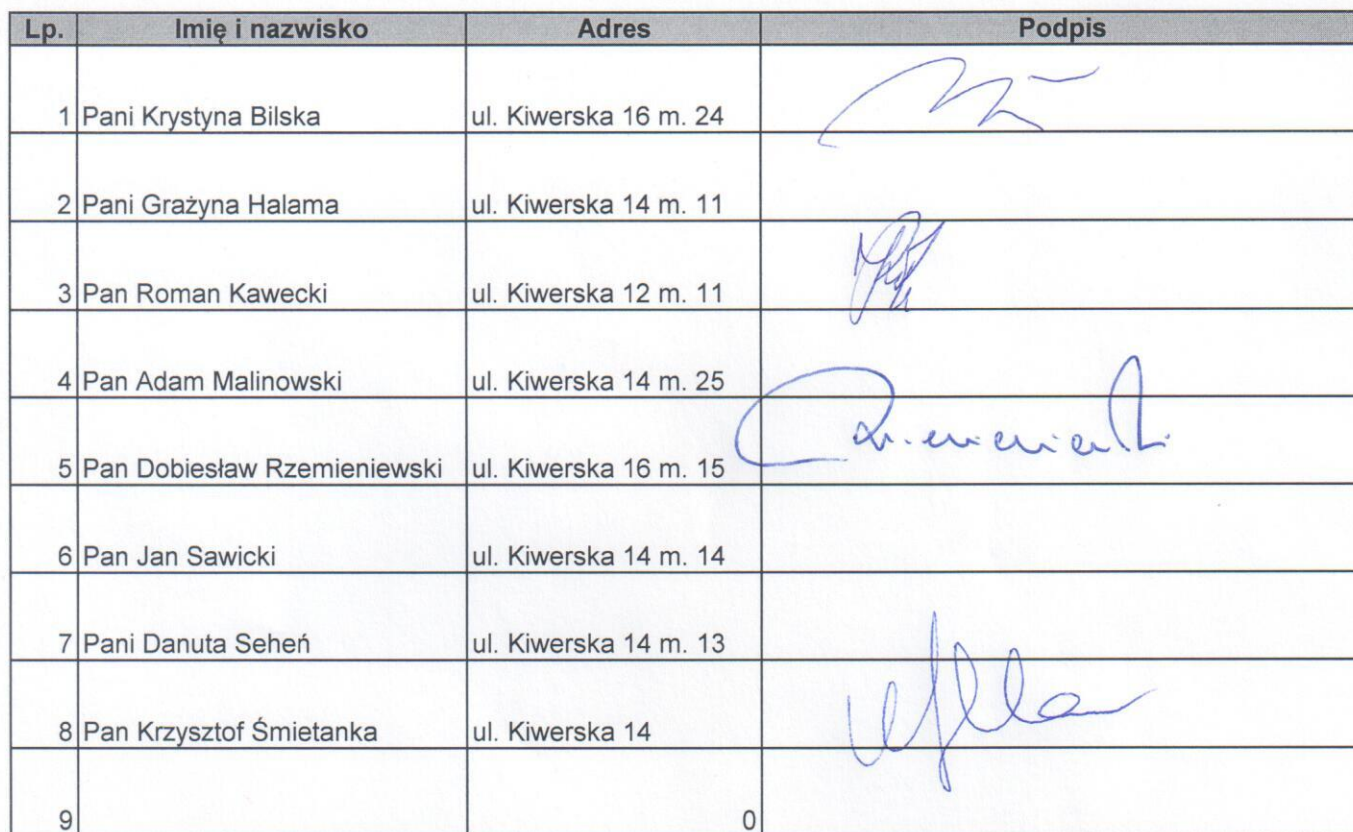 Lp. Imię i nazwisko Adres Podpis
1 Pani Krystyna Bilska ul. Kiwerska 16 m. 24
2 Pani Grażyna Halama ul. Kiwerska 14 m. 11
3 Pan Roman Kawecki ul. Kiwerska 12 m. 11
4 Pan Adam Malinowski ul. Kiwerska 14 m. 25
5 Pan Dobiesław Rzemieniewski ul. Kiwerska 16 m. 15
6 Pan Jan Sawicki ul. Kiwerska 14 m. 14
7 Pani Danuta Seheń ul. Kiwerska 14 m. 13
8 Pan Krzysztof Śmietanka ul. Kiwerska 14
9 0